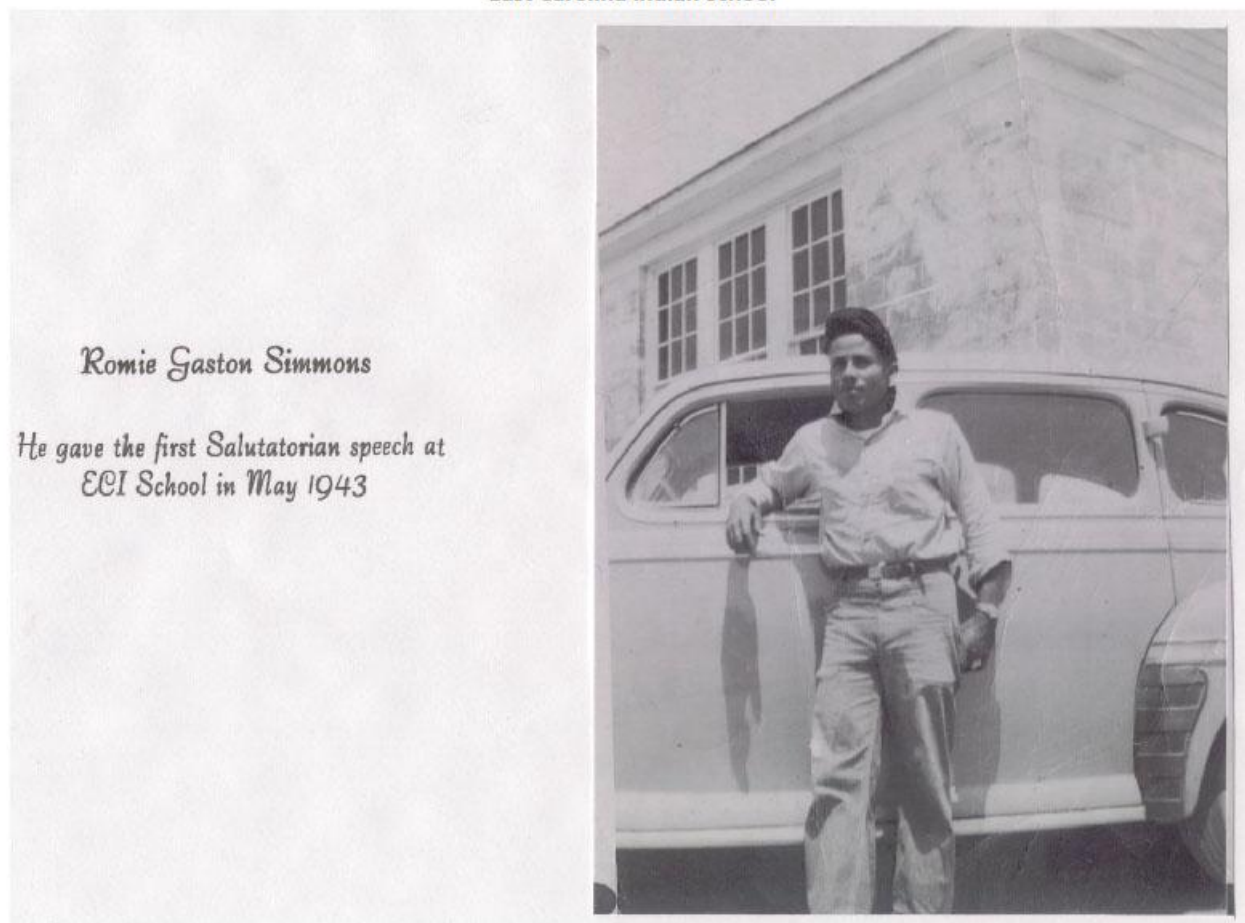 Romie Gaston Simmons
He gave the first Salutatorian speech at
ECI School in May 1943